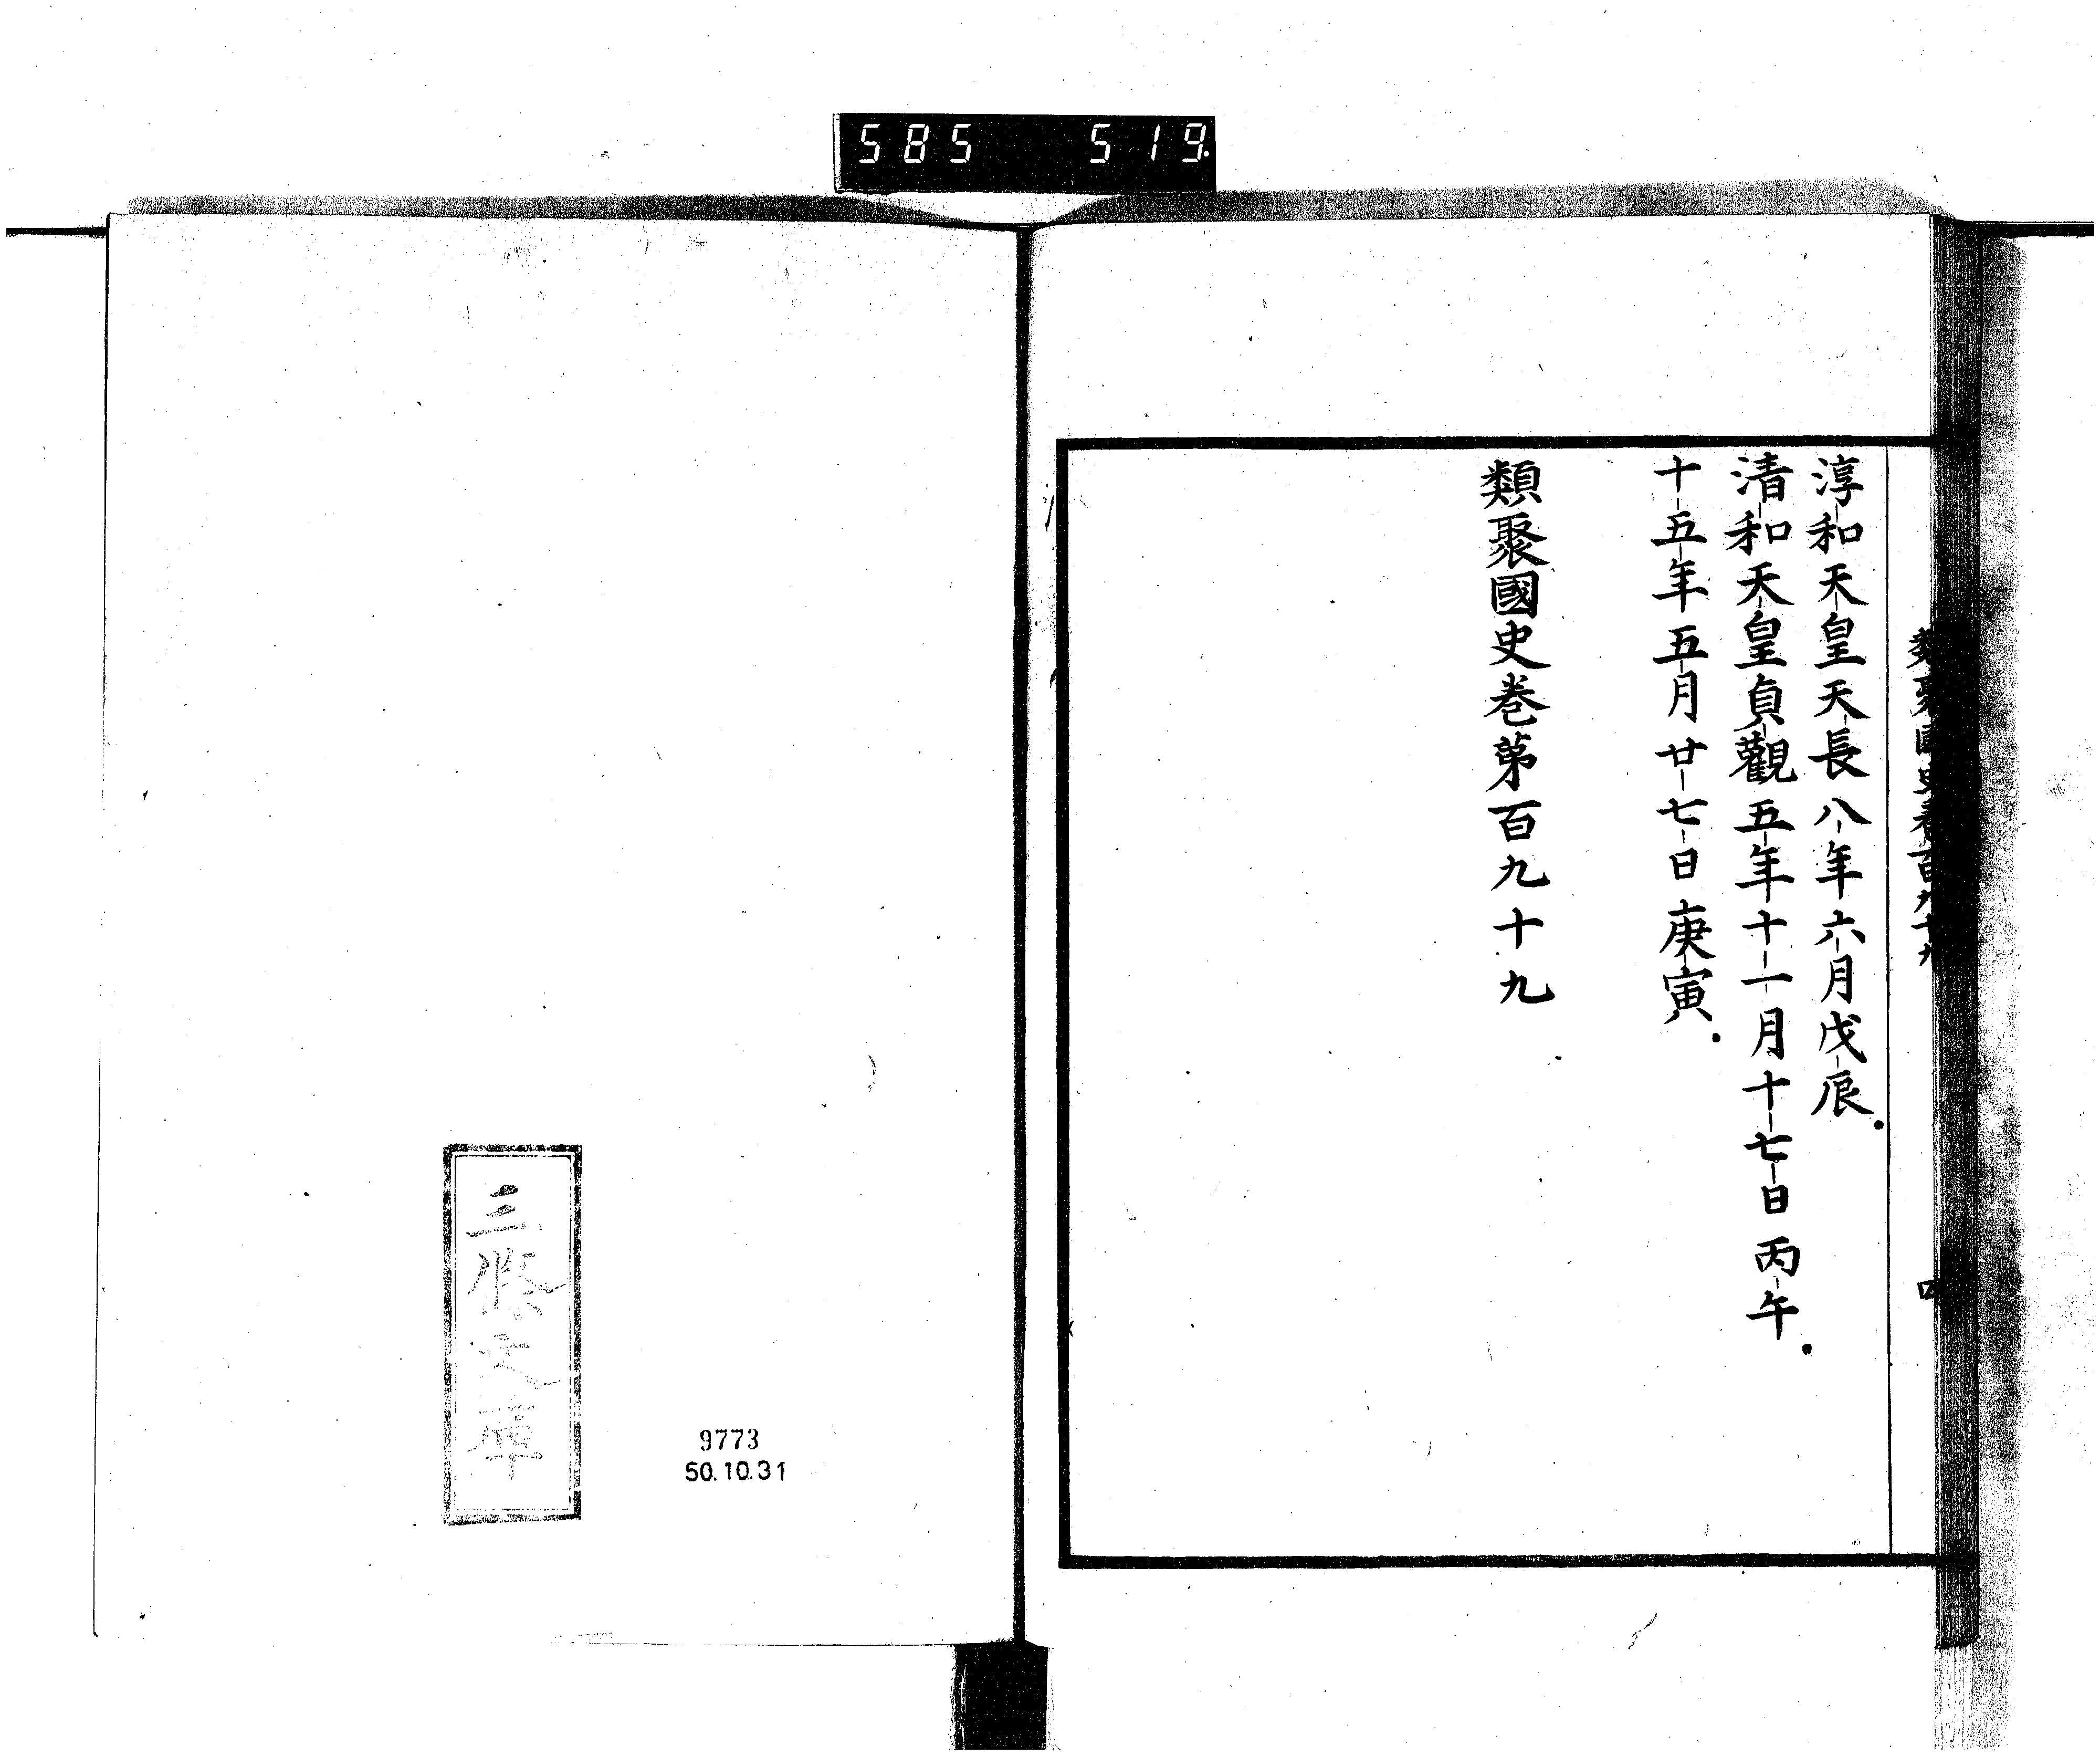 585 519.
類聚國史卷百九十九
四
淳和天皇天長八年六月戊辰.
清和天皇貞觀五年十一月十七日丙午.
十五年五月廿七日庚寅.
類聚國史卷第百九十九
9773
50.10.31
文庫